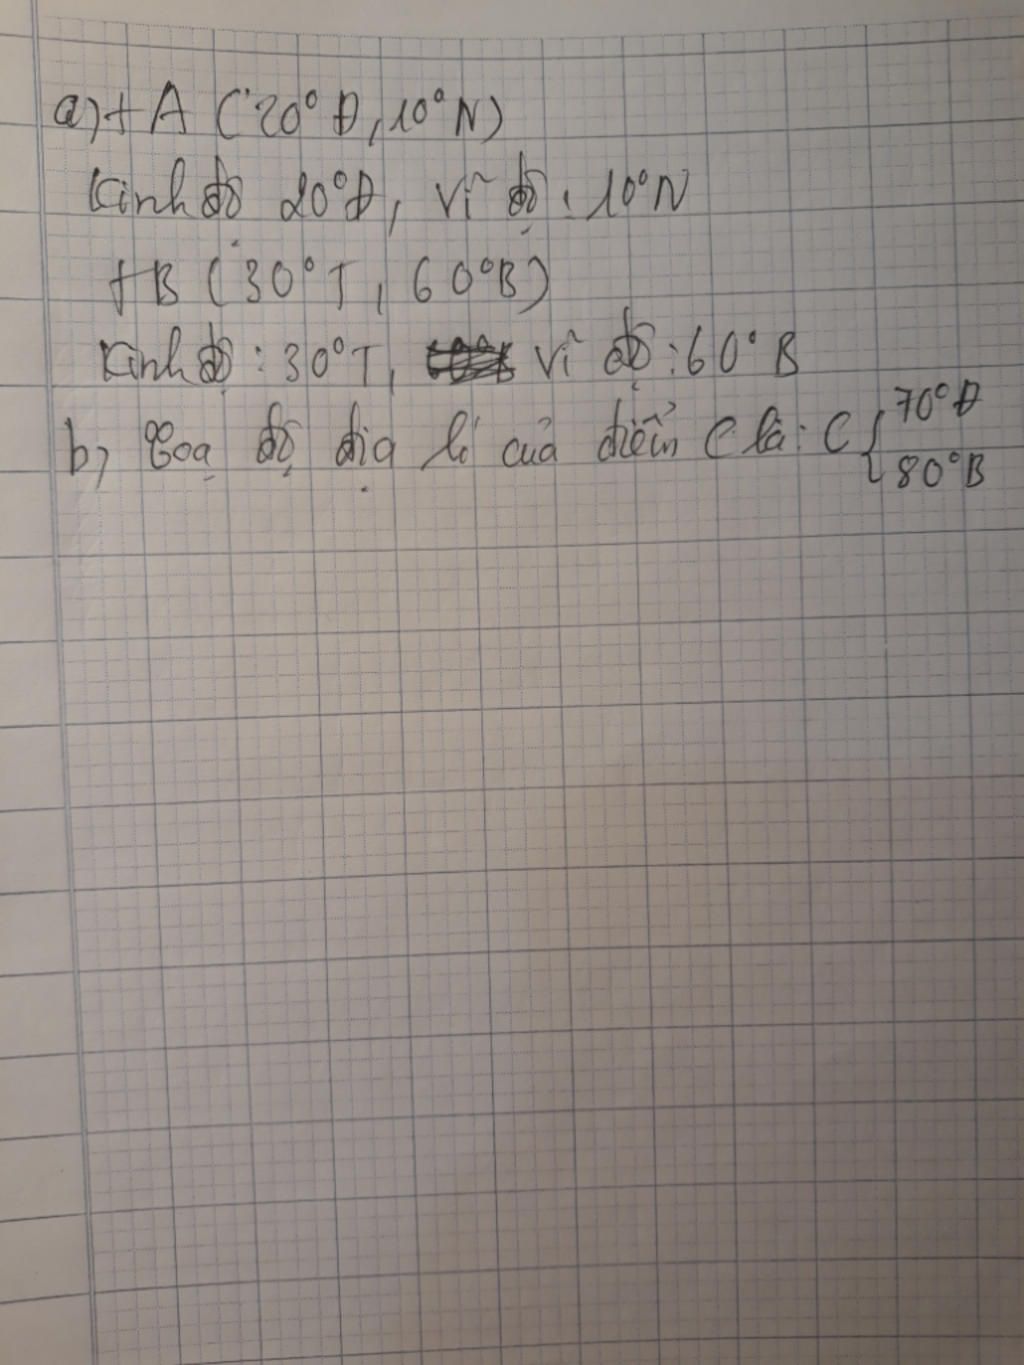 a) + A (20° Đ, 10° N)
Kinh độ 20° Đ, vĩ độ: 10° N
+ B (30° T, 60° B)
Kinh độ: 30° T, vĩ độ: 60° B
b) Toạ độ địa lí của điểm C là: C { 70° Đ
80° B